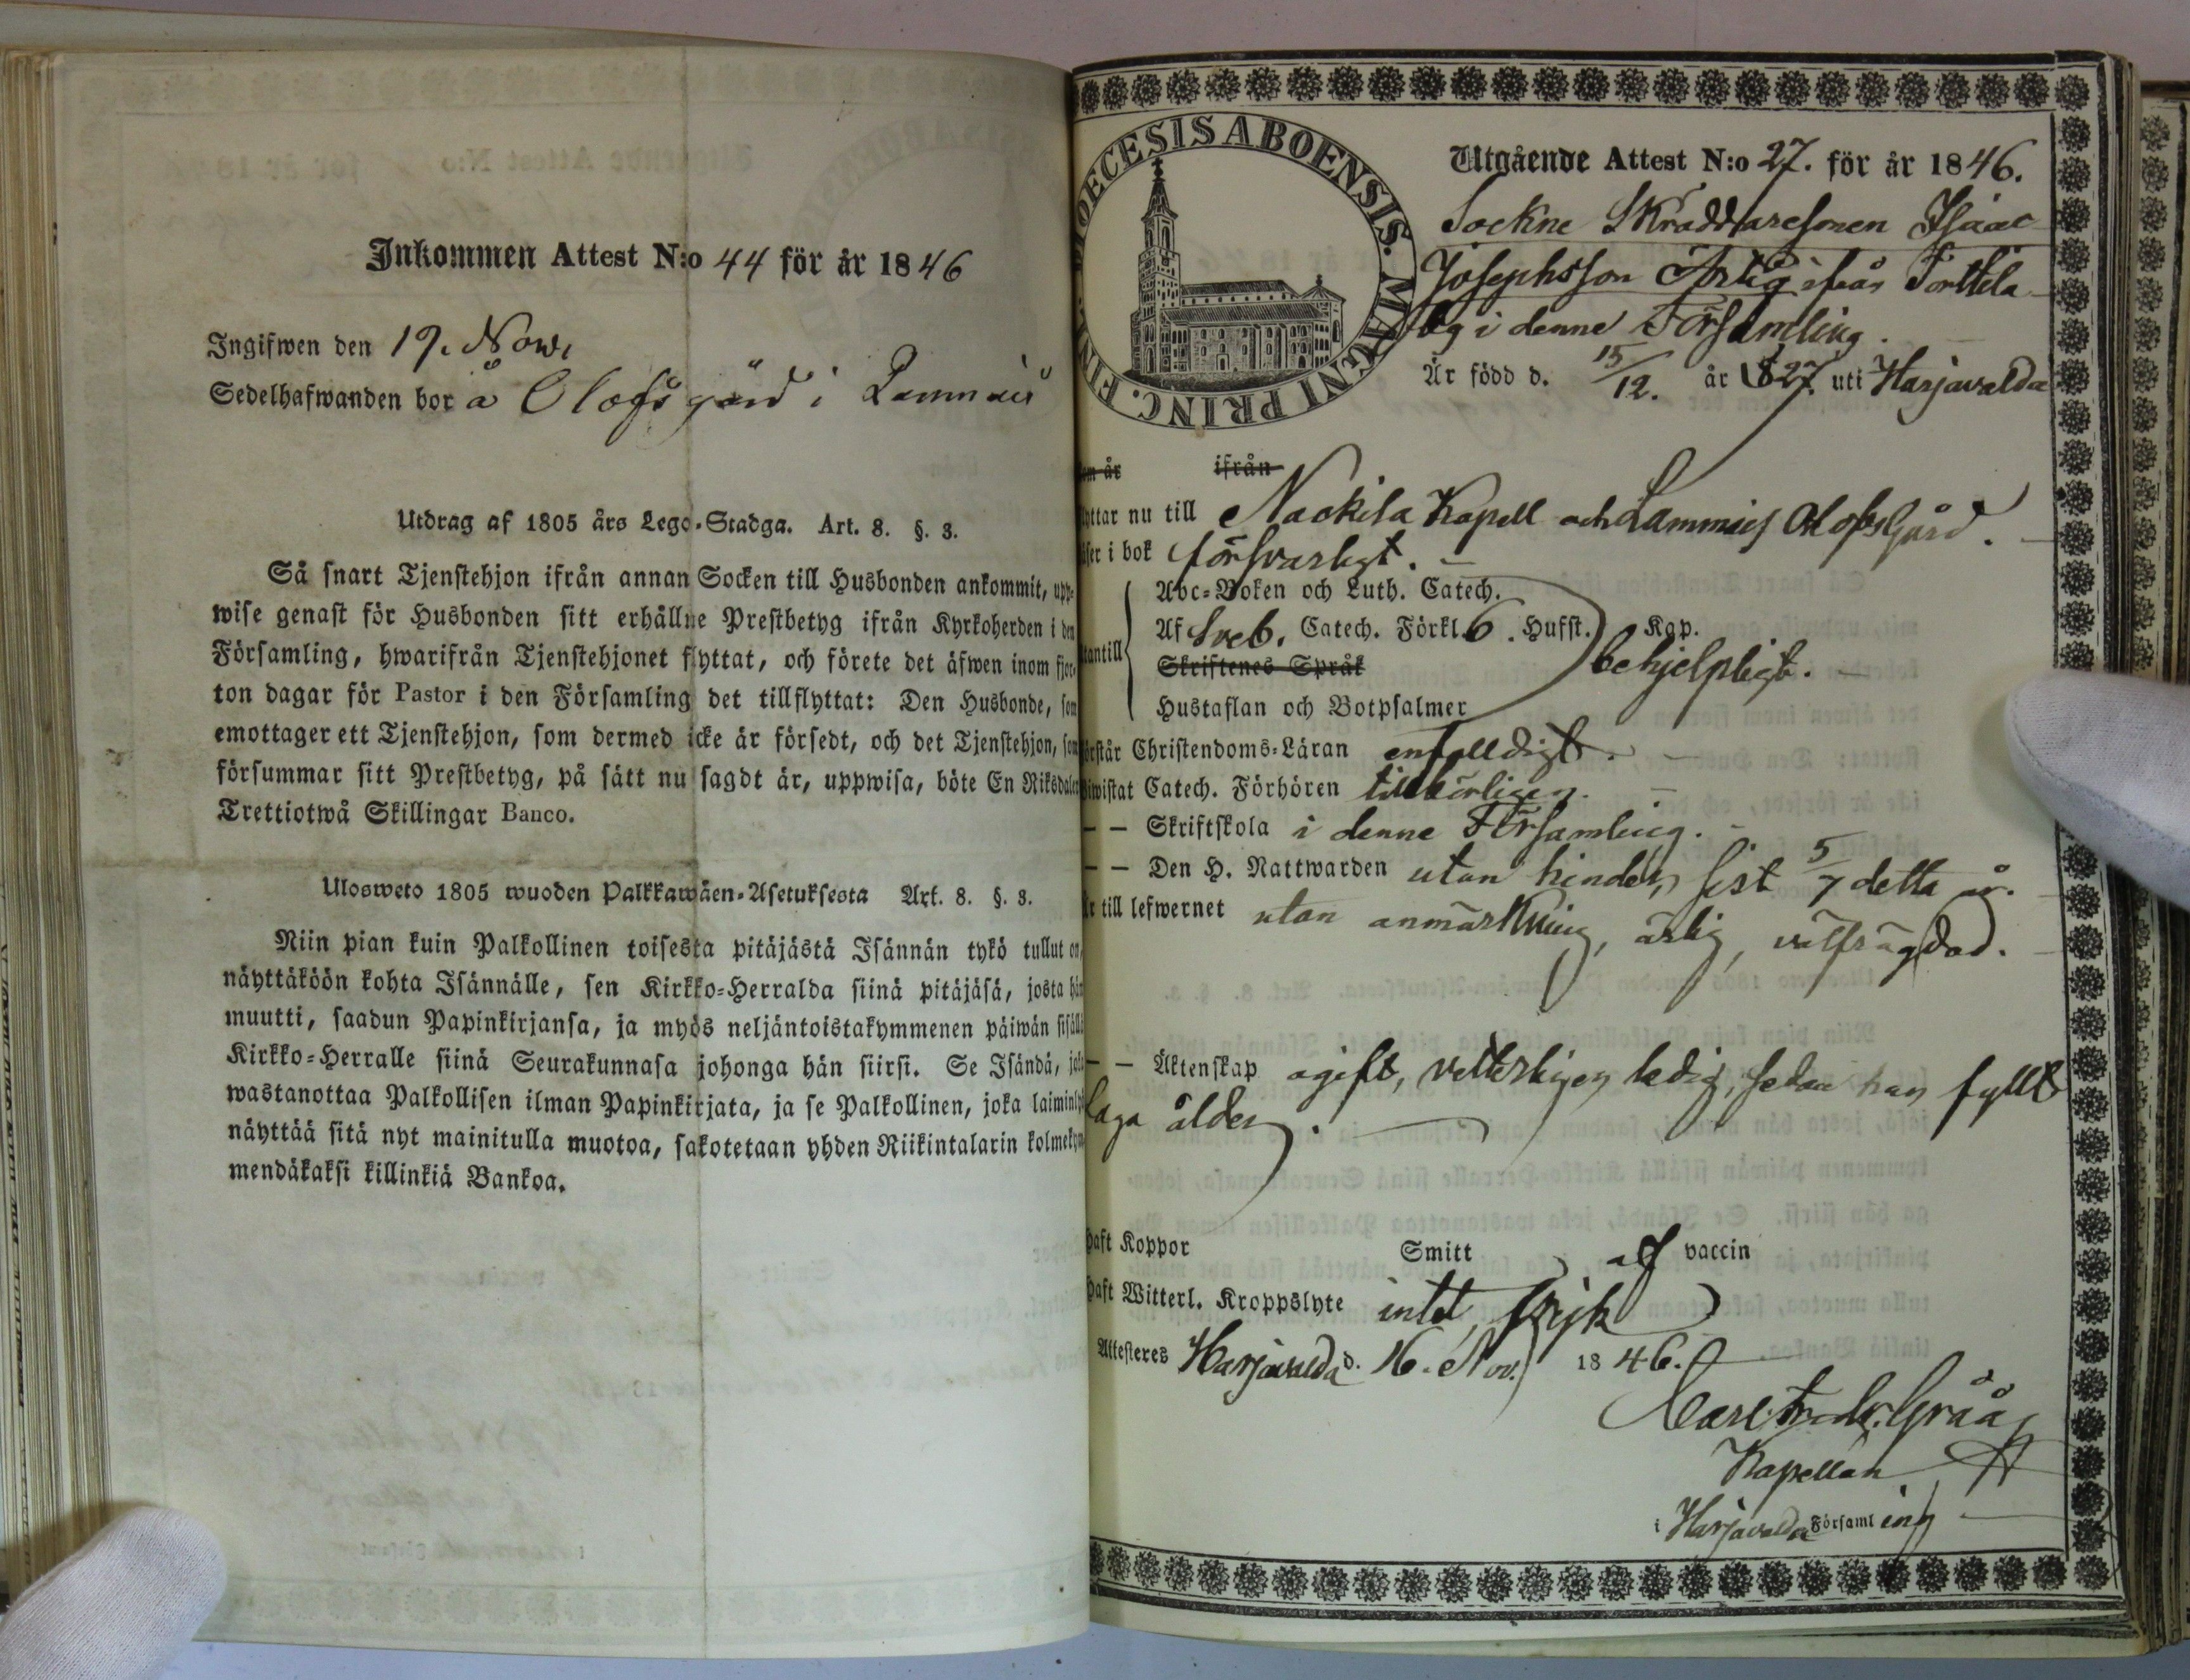 Inkommen Attest N:o 44 för år 1846
Ingifwen den 19. Nov.
Sedelhafwanden bor å Olofsgård i Lammais
Utdrag af 1805 års Lego-Stadga. Art. 8. §. 3.
Så snart Tjenstehjon ifrån annan Socken till Husbonden ankommit, upp-
wise genast för Husbonden sitt erhållne Prestbetyg ifrån Kyrkoherden i den
Församling, hwarifrån Tjenstehjonet flyttat, och förete det äfwen inom fjor-
ton dagar för Pastor i den Församling det tillflyttat: Den Husbonde, som
emottager ett Tjenstehjon, som dermed icke är försedt, och det Tjenstehjon, som
försummar sitt Prestbetyg, på sätt nu sagdt är, uppwisa, böte En Riksdaler
Trettiotwå Skillingar Banco.
Ulosweto 1805 wuoden Palkkawäen-Asetuksesta Art. 8. §. 3.
Niin pian kuin Palkollinen toisesta pitäjästä Isännän tykö tullut on,
näyttäköön kohta Isännälle, sen Kirkko-Herralda siinä pitäjäsä, josta hän
muutti, saadun Papinkirjansa, ja myös neljäntoistakymmenen päiwän sisällä
Kirkko-Herralle siinä Seurakunnasa johonga hän siirsi. Se Isändä, joka
wastanottaa Palkollisen ilman Papinkirjata, ja se Palkollinen, joka laiminlyö
näyttää sitä nyt mainitulla muotoa, sakotetaan yhden Riikintalarin kolmekym-
mendäkaksi killinkiä Bankoa.
DIOECESIS ABOENSIS. MAGNI PRINC. FINL.
Utgående Attest N:o 27. för år 1846.
Sockne Skräddaresonen Isaac
Josephsson Ärlig ifrån Torttila
by i denne Församling.
Är född d. 15/12. år 1827. uti Harjavalda
om år ifrån
flyttar nu till Nackila Kapell och Lammais Olofsgård.
läser i bok försvarligt.
Abc-Boken och Luth. Catech.
utantill Af Sveb. Catech. Förkl. 6. Hufst. Kap.
behjelpligt.
Skriftenes Språk
Hustaflan och Botpsalmer
förstår Christendoms-Läran enfalldigt.
biwistat Catech. Förhören tillbörligen.
— — Skriftskola i denne Församling.
— — Den H. Nattwarden utan hinder, sist 5/7 detta år.
Är till lefwernet utan anmärkning, ärlig, välfrägdad.
— — Äktenskap ogift, vetterligen ledig, sedan han fyllt
laga ålder.
haft Koppor Smitt af vaccin
haft Witterl. Kroppslyte intet, frisk
Attesteres Harjavalda d. 16. Nov. 1846.
Carl Fredr. Gråå
Kapellan
i Harjavalda Församling